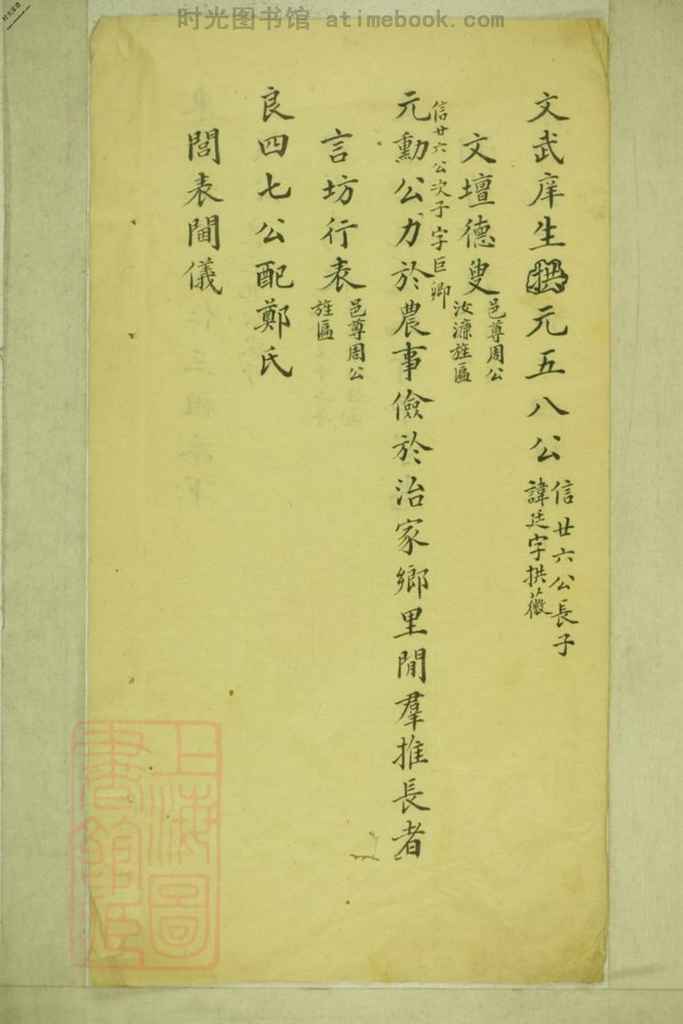 时光图书馆 atimebook.com
文武庠生元五八公
信廿六公長子
諱廷字拱薇
文壇德叟
邑尊周公
汝濂旌匾
信廿六公次子字巨卿
元勳公力於農事儉於治家鄉里閒羣推長者
言坊行表
邑尊周公
旌匾
良四七公配鄭氏
閭表閫儀
上海圖書館藏